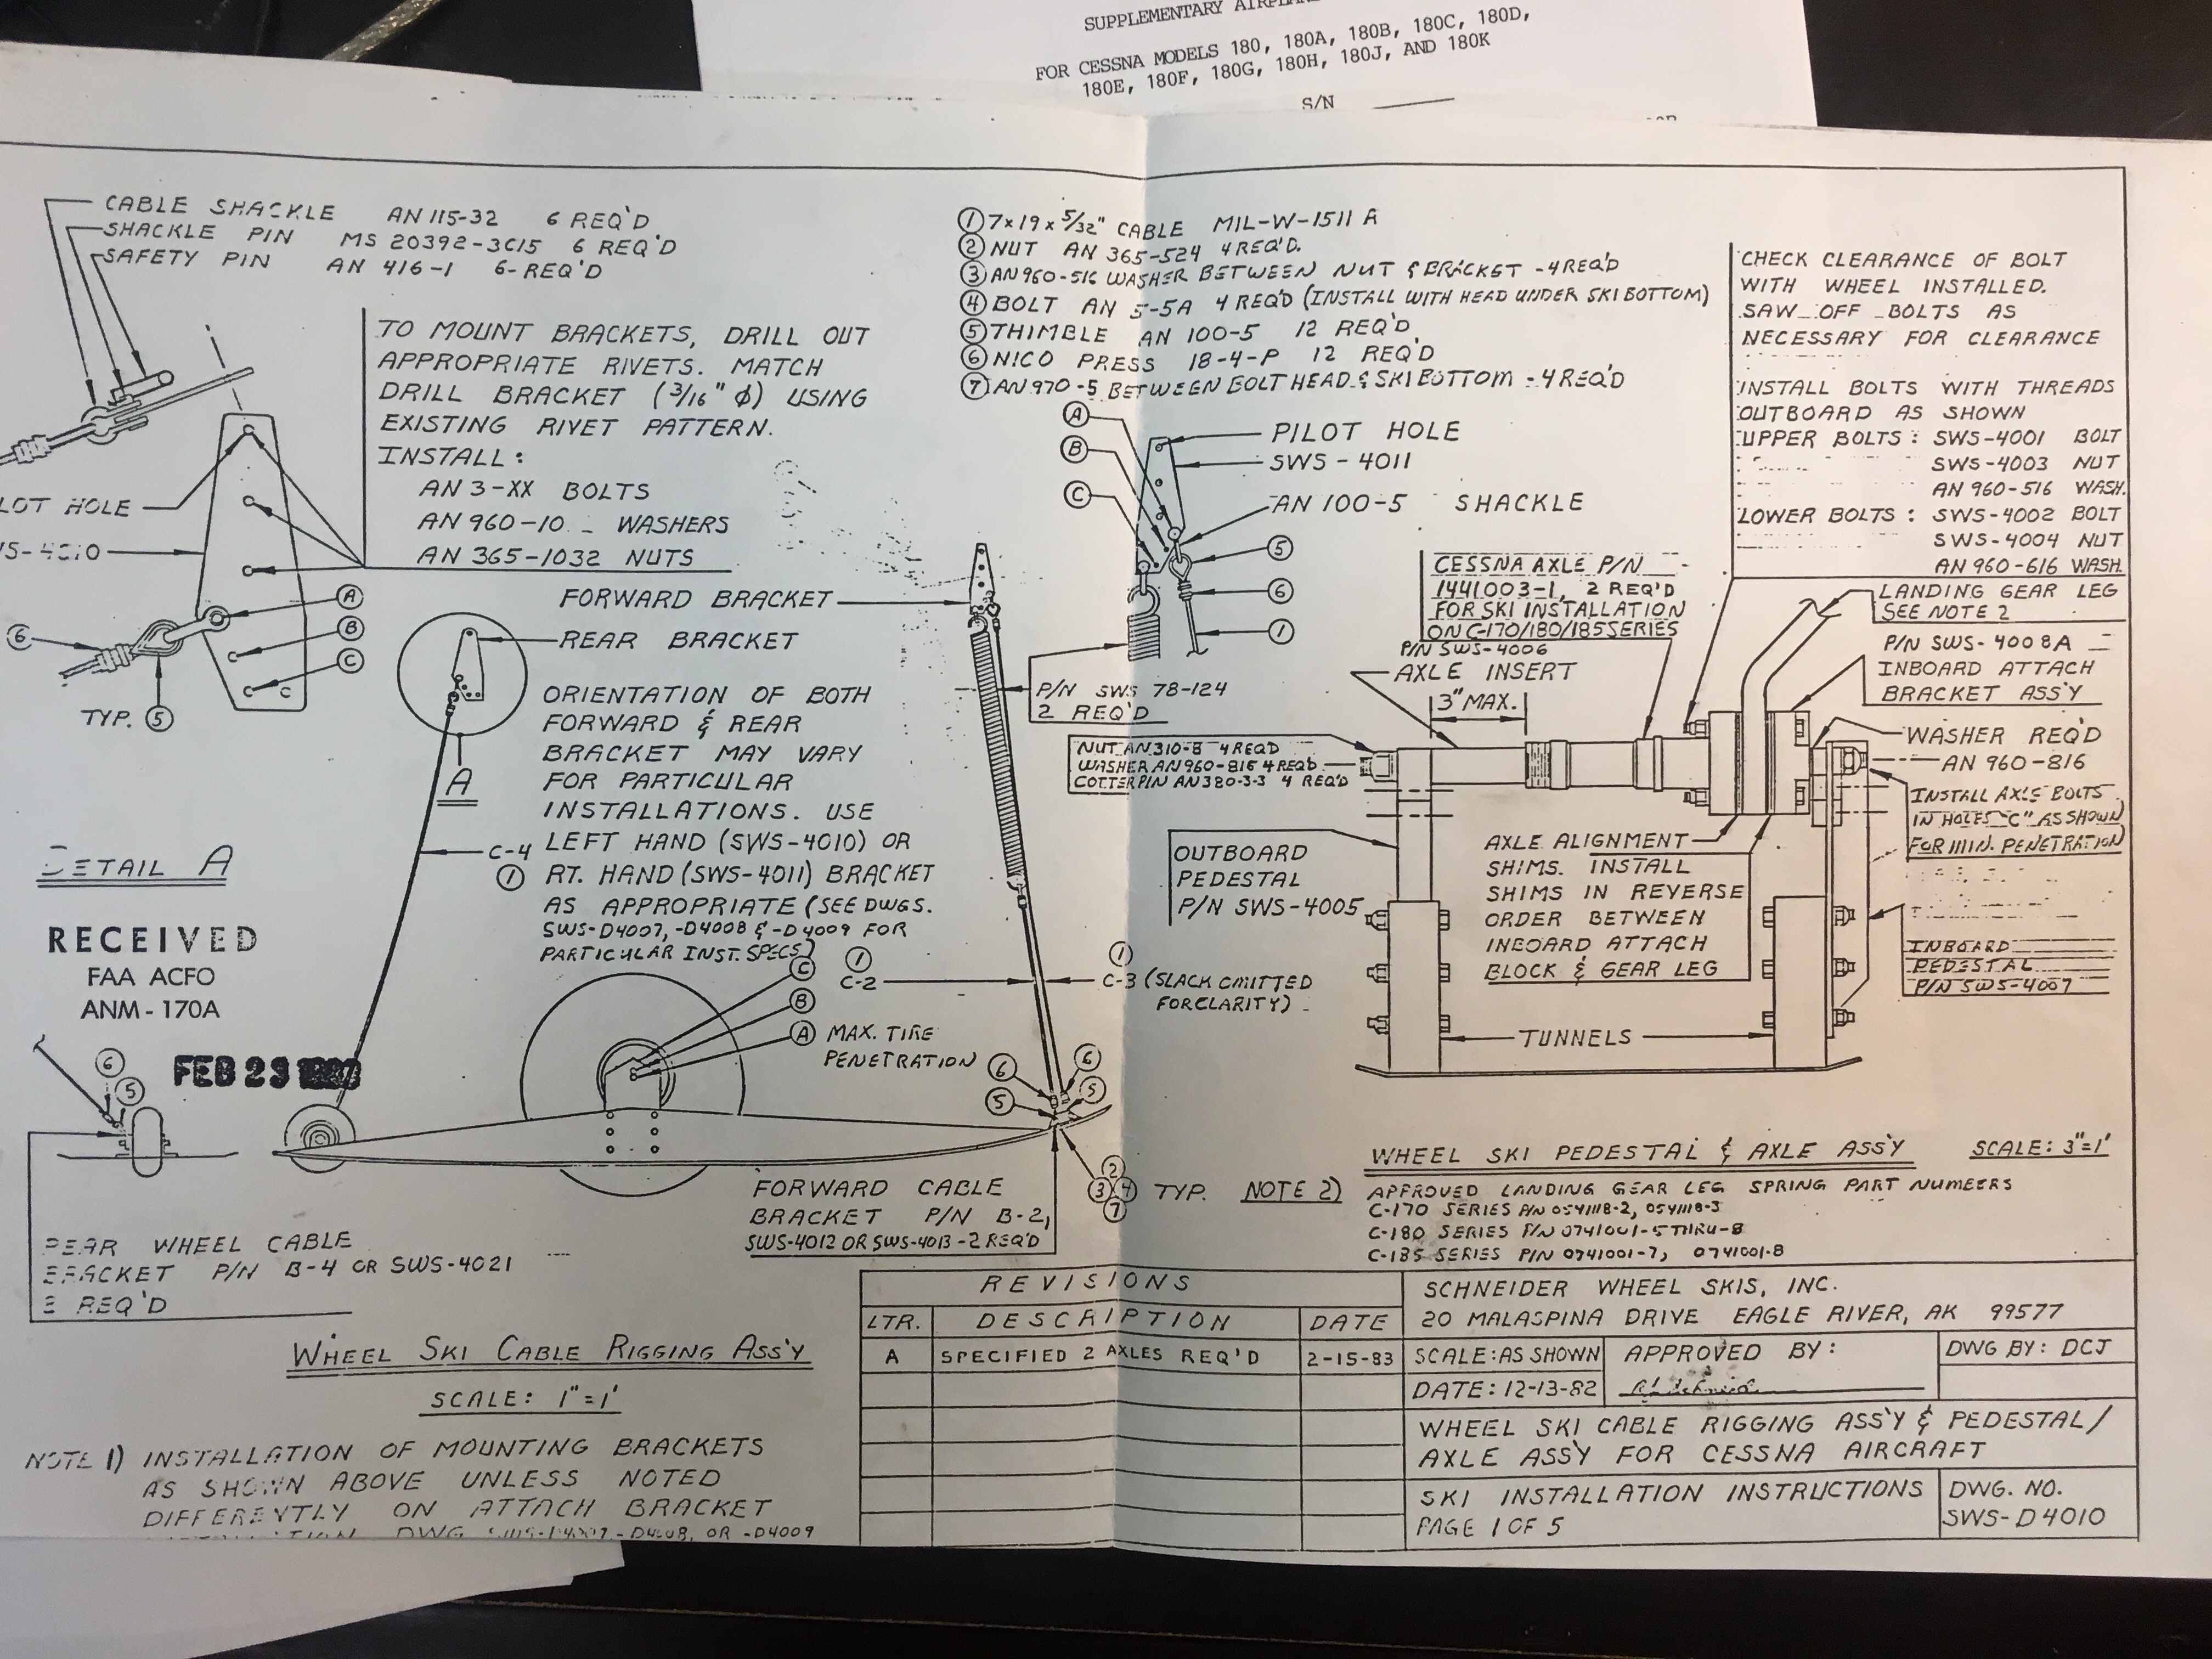 SUPPLEMENTARY
FOR CESSNA MODELS 180, 180A, 180B, 180C, 180D,
180E, 180F, 180G, 180H, 180J, AND 180K
S/N
CABLE SHACKLE AN 115-32 6 REQ'D
SHACKLE PIN MS 20392-3C15 6 REQ'D
SAFETY PIN AN 416-1 6-REQ'D
TO MOUNT BRACKETS, DRILL OUT
APPROPRIATE RIVETS. MATCH
DRILL BRACKET (3/16" ϕ) USING
EXISTING RIVET PATTERN.
INSTALL:
AN 3-XX BOLTS
AN 960-10 WASHERS
AN 365-1032 NUTS
HOLE
A
B
C
C
6
TYP. 5
DETAIL A
RECEIVED
FAA ACFO
ANM-170A
FEB 23
① 7x19x5/32" CABLE MIL-W-1511 A
② NUT AN 365-524 4 REQ'D.
③ AN960-516 WASHER BETWEEN NUT & BRACKET -4 REQ'D
④ BOLT AN 5-5A 4 REQ'D (INSTALL WITH HEAD UNDER SKI BOTTOM)
⑤ THIMBLE AN 100-5 12 REQ'D
⑥ NICO PRESS 18-4-P 12 REQ'D
⑦ AN970-5 BETWEEN BOLT HEAD & SKI BOTTOM -4 REQ'D
A
B
C
PILOT HOLE
SWS-4011
AN 100-5 SHACKLE
5
6
1
FORWARD BRACKET
REAR BRACKET
A
P/N SWS 78-124
2 REQ'D
ORIENTATION OF BOTH
FORWARD & REAR
BRACKET MAY VARY
FOR PARTICULAR
INSTALLATIONS. USE
LEFT HAND (SWS-4010) OR
RT. HAND (SWS-4011) BRACKET
AS APPROPRIATE (SEE DWGS.
SWS-D4007, -D4008 & -D4009 FOR
PARTICULAR INST. SPECS)
C-4
1
1
C-2
1
C-3 (SLACK OMITTED
FOR CLARITY)
C
B
A MAX. TIRE
PENETRATION
6
5
6
5
6
5
2
3 4 TYP.
7
FORWARD CABLE
BRACKET P/N B-2,
SWS-4012 OR SWS-4013 -2 REQ'D
REAR WHEEL CABLE
BRACKET P/N B-4 OR SWS-4021
REQ'D
WHEEL SKI CABLE RIGGING ASS'Y
SCALE: 1"=1'
NOTE 1) INSTALLATION OF MOUNTING BRACKETS
AS SHOWN ABOVE UNLESS NOTED
DIFFERENTLY ON ATTACH BRACKET
DWG -D4008, OR -D4009
CHECK CLEARANCE OF BOLT
WITH WHEEL INSTALLED.
SAW OFF BOLTS AS
NECESSARY FOR CLEARANCE
INSTALL BOLTS WITH THREADS
OUTBOARD AS SHOWN
UPPER BOLTS: SWS-4001 BOLT
SWS-4003 NUT
AN 960-516 WASH.
LOWER BOLTS: SWS-4002 BOLT
SWS-4004 NUT
AN 960-616 WASH.
CESSNA AXLE P/N
1441003-1, 2 REQ'D
FOR SKI INSTALLATION
ON C-170/180/185 SERIES
P/N SWS-4006
AXLE INSERT
3" MAX.
LANDING GEAR LEG
SEE NOTE 2
P/N SWS-4008A
INBOARD ATTACH
BRACKET ASS'Y
WASHER REQ'D
AN 960-816
INSTALL AXLE BOLTS
IN HOLES "C" AS SHOWN
FOR MIN. PENETRATION
NUT AN310-8 4 REQ'D
WASHER AN960-816 4 REQ'D
COTTER PIN AN380-3-3 4 REQ'D
OUTBOARD
PEDESTAL
P/N SWS-4005
AXLE ALIGNMENT
SHIMS. INSTALL
SHIMS IN REVERSE
ORDER BETWEEN
INBOARD ATTACH
BLOCK & GEAR LEG
INBOARD
PEDESTAL
P/N SWS-4007
TUNNELS
WHEEL SKI PEDESTAL & AXLE ASS'Y SCALE: 3"=1'
NOTE 2) APPROVED LANDING GEAR LEG SPRING PART NUMBERS
C-170 SERIES P/N 0541118-2, 0541118-3
C-180 SERIES P/N 0741001-5 THRU-8
C-185 SERIES P/N 0741001-7, 0741001-8
REVISIONS
LTR. DESCRIPTION DATE
A SPECIFIED 2 AXLES REQ'D 2-15-83
SCHNEIDER WHEEL SKIS, INC.
20 MALASPINA DRIVE EAGLE RIVER, AK 99577
SCALE: AS SHOWN APPROVED BY: DWG BY: DCJ
DATE: 12-13-82
WHEEL SKI CABLE RIGGING ASS'Y & PEDESTAL/
AXLE ASS'Y FOR CESSNA AIRCRAFT
SKI INSTALLATION INSTRUCTIONS DWG. NO.
PAGE 1 OF 5 SWS-D4010